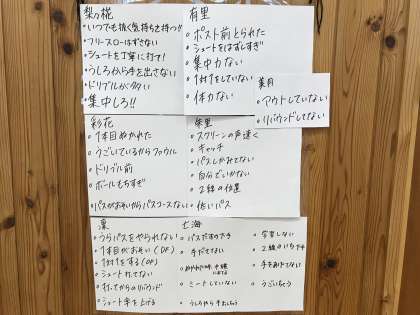 梨々花
・いつでも抜く気持ちを持つ!!
・フリースローはずさない
・シュートを丁寧に打て!
・うしろから手を出さない
・ドリブルがたかい
・集中しろ!!
有里
・ポスト前とられた
・シュートをはずしすぎ
・集中力ない
・1対1をしていない
・体力ない
美月
・アウトしていない
・リバウンドしてない
彩花
・1本目ぬかれた
・うごいているからファウル
・ドリブル前
・ボールもちすぎ
・パスがおそいからパスコースない
朱里
・スクリーンの声速く
・キャッチ
・パスしかみてない
・自分でいかない
・2線の位置
・低いパス
凛
・うらパスをやられない
・1本目がおそい(DF)
・1対1をする(OF)
・シュート打てない
・打ってからのリバウンド
・シュート率を上げる
七海
・手がでてない
・ミートしていない
・うしろから手をださない
・2線のいちが下手
・手をあげてない